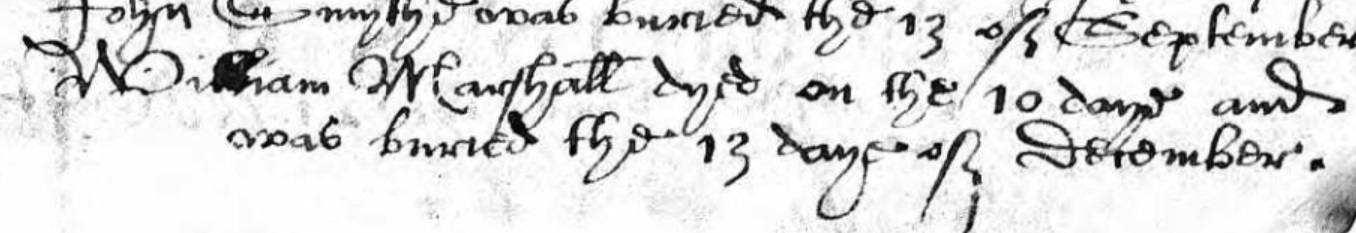 John Smythe was buried the 13 of September
William Marshall dyed on the 10 daye and
was buried the 13 daye of December.